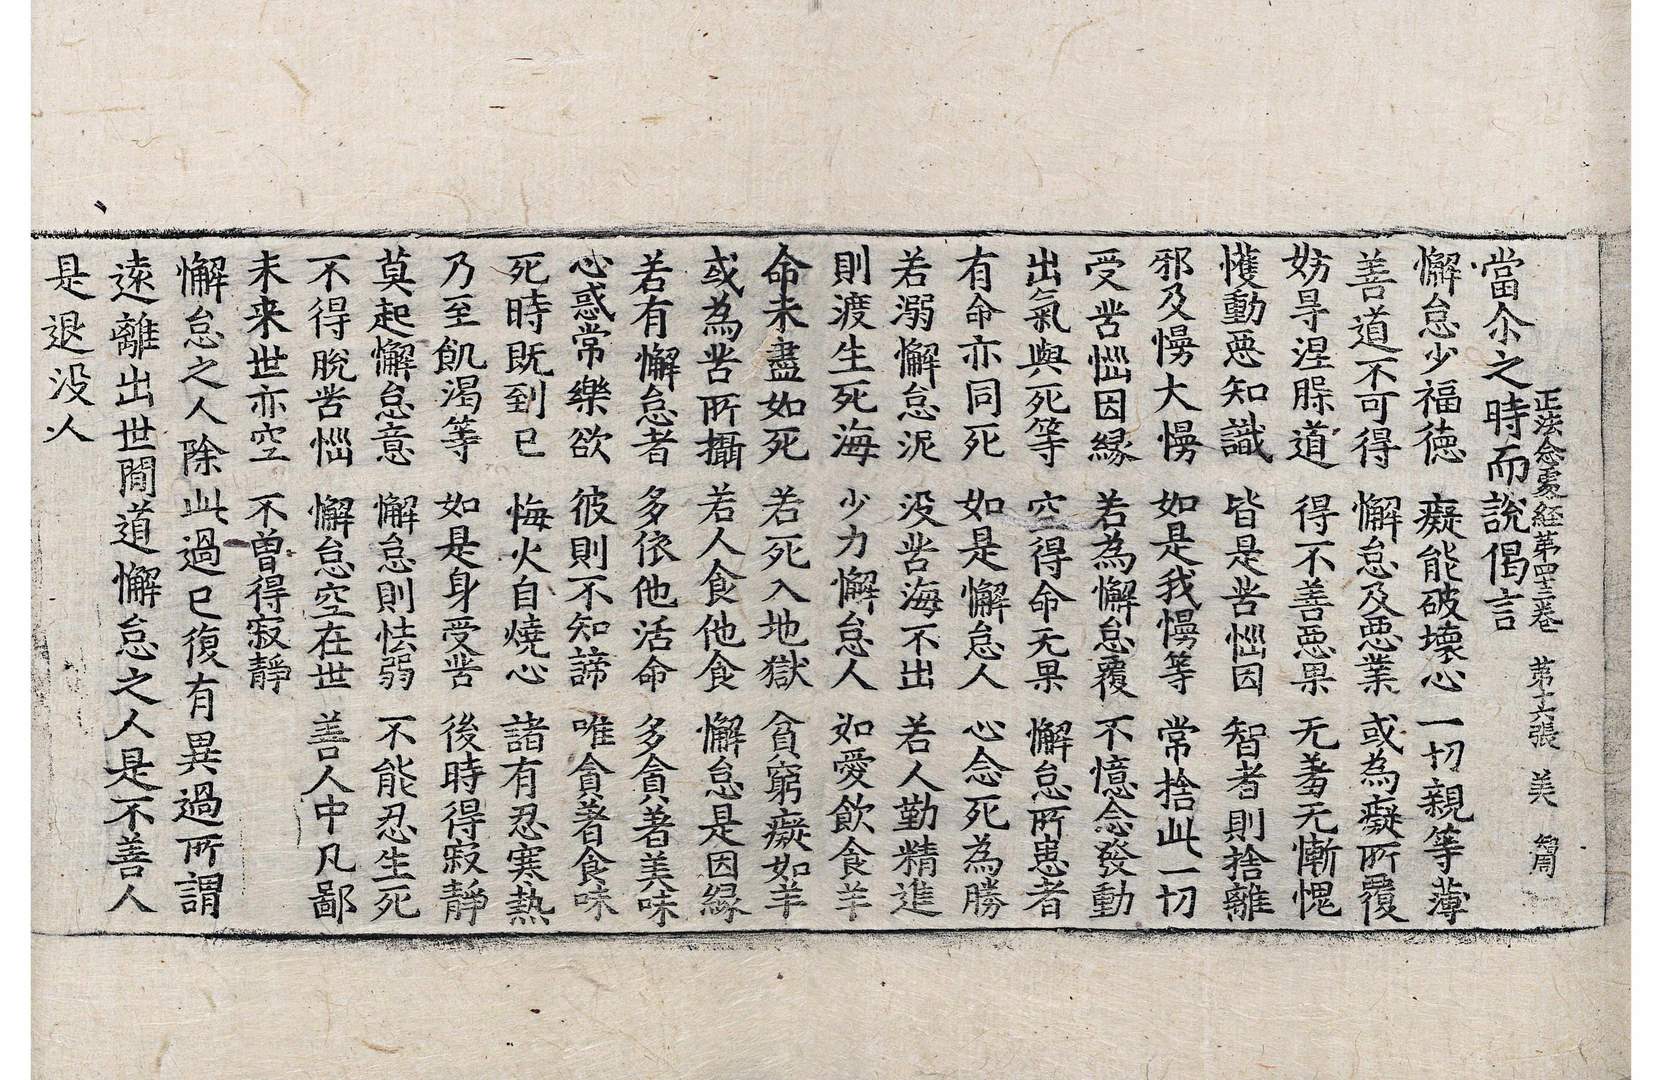 正法念處経第四十三卷 第十六張 美 簡
當尒之時而說偈言
懈怠少福德 癡能破壞心 一切親等薄
善道不可得 懈怠及惡業 或為癡所覆
妨㝵涅槃道 得不善惡果 无羞无慚愧
㦜動惡知識 皆是苦惱因 智者則捨離
邪及慢大慢 如是我慢等 常捨此一切
受苦惱因縁 若為懈怠覆 不憶念發動
出氣與死等 空得命无果 懈怠所患者
有命亦同死 如是懈怠人 心念死為勝
若溺懈怠泥 没苦海不出 若人勤精進
則渡生死海 少力懈怠人 如愛飲食羊
命未盡如死 若死入地獄 貧窮癡如羊
或為苦所攝 若人食他食 懈怠是因縁
若有懈怠者 多依他活命 多貪著美味
心惑常樂欲 彼則不知諦 唯貪著食味
死時既到已 悔火自燒心 諸有忍寒熱
乃至飢渴等 如是身受苦 後時得寂靜
莫起懈怠意 懈怠則怯弱 不能忍生死
不得脫苦惱 懈怠空在世 善人中凡鄙
未来世亦空 不曽得寂靜
懈怠之人除此過已復有異過所謂
遠離出世間道懈怠之人是不善人
是退没人